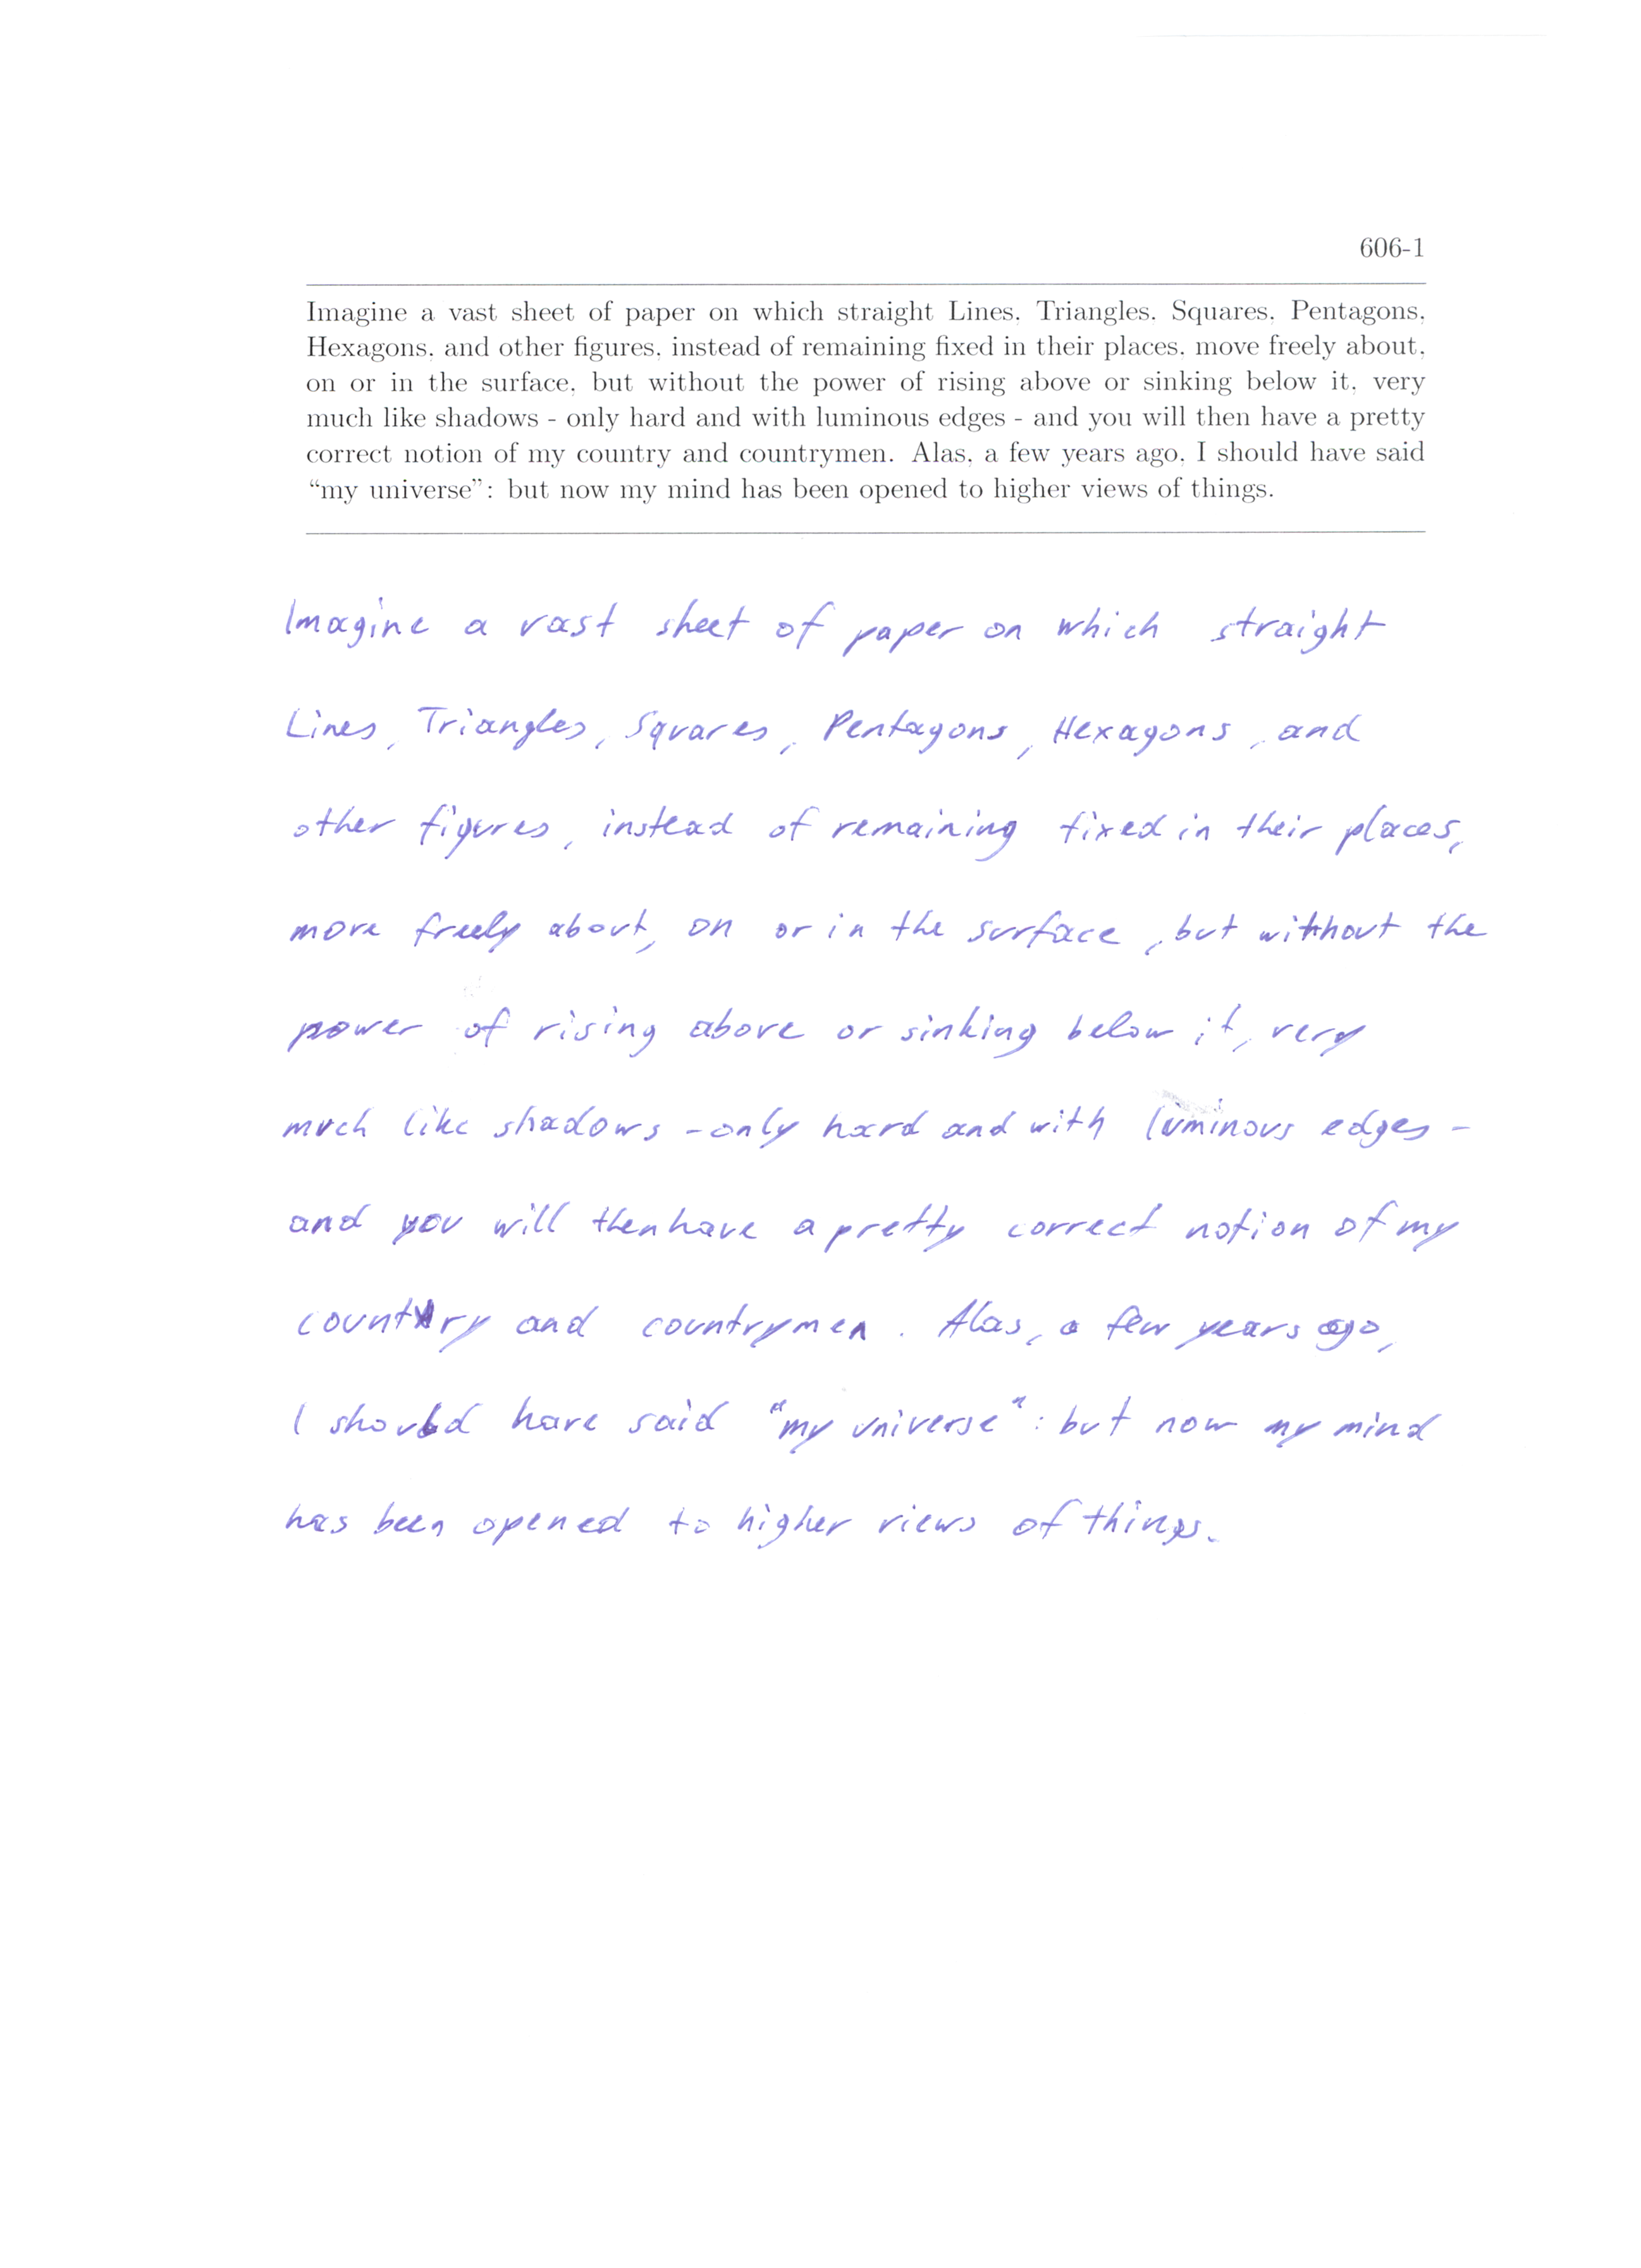 606-1
Imagine a vast sheet of paper on which straight Lines, Triangles, Squares, Pentagons,
Hexagons, and other figures, instead of remaining fixed in their places, move freely about,
on or in the surface, but without the power of rising above or sinking below it, very
much like shadows - only hard and with luminous edges - and you will then have a pretty
correct notion of my country and countrymen. Alas, a few years ago, I should have said
“my universe”: but now my mind has been opened to higher views of things.
Imagine a vast sheet of paper on which straight
Lines, Triangles, Squares, Pentagons, Hexagons, and
other figures, instead of remaining fixed in their places,
move freely about, on or in the surface, but without the
power of rising above or sinking below it, very
much like shadows - only hard and with luminous edges -
and you will then have a pretty correct notion of my
country and countrymen. Alas, a few years ago,
I should have said "my universe": but now my mind
has been opened to higher views of things.